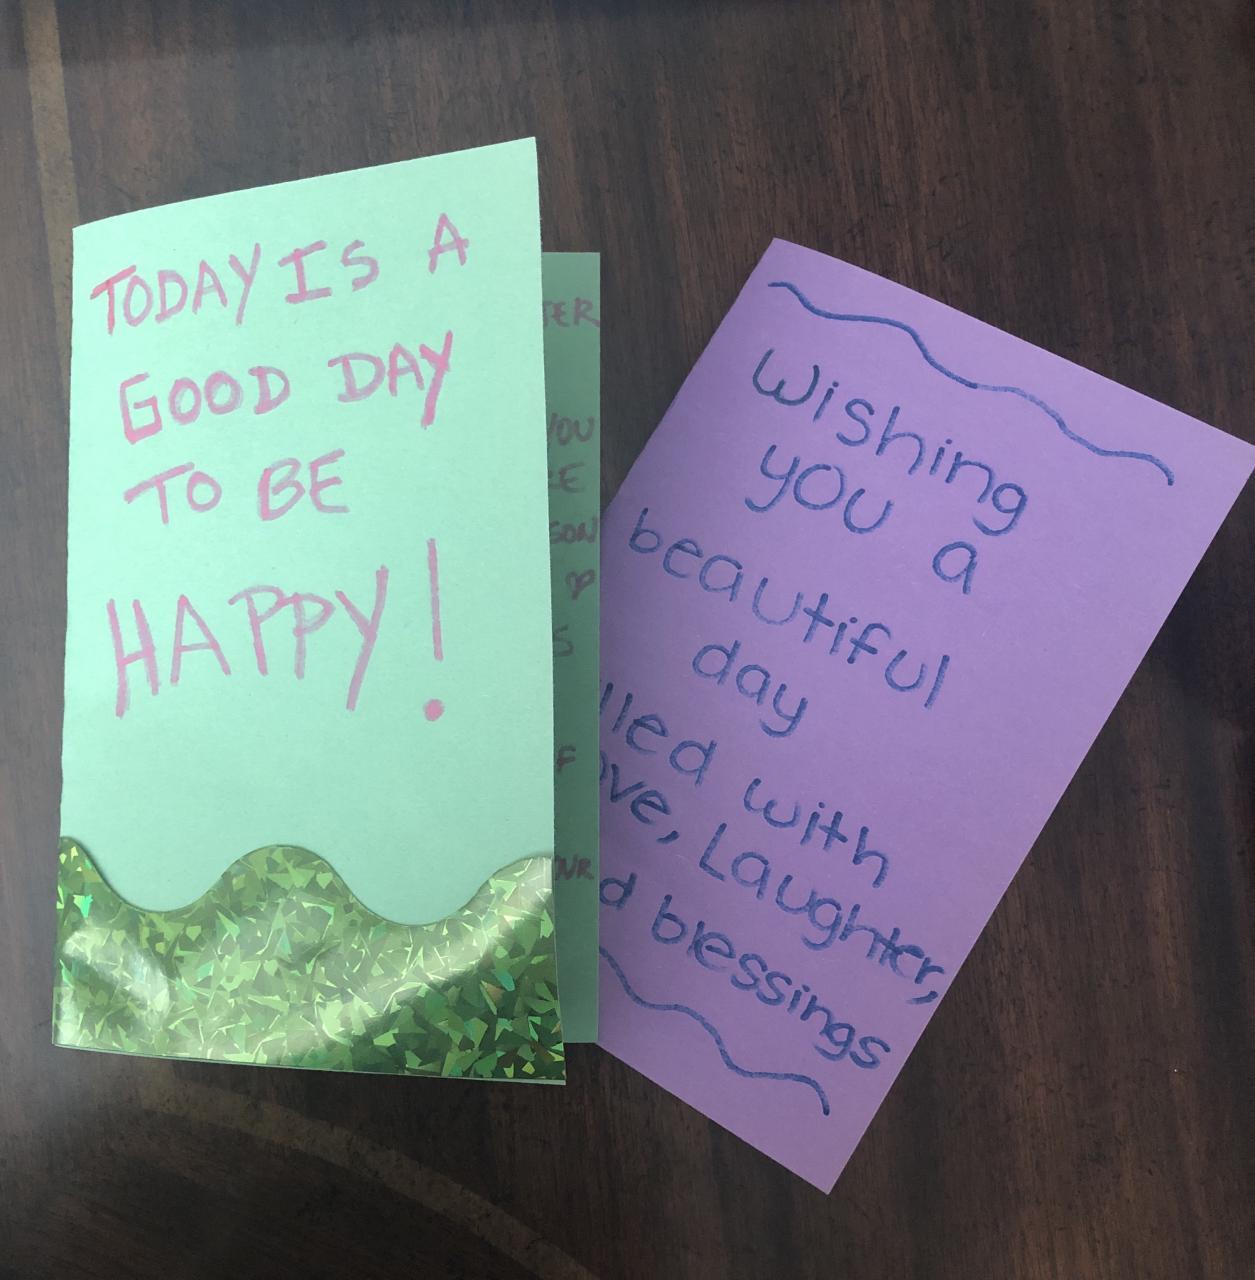 TODAY IS A
GOOD DAY
TO BE
HAPPY!
YOU
Wishing
you a
beautiful
day
with
Laughter,
blessings